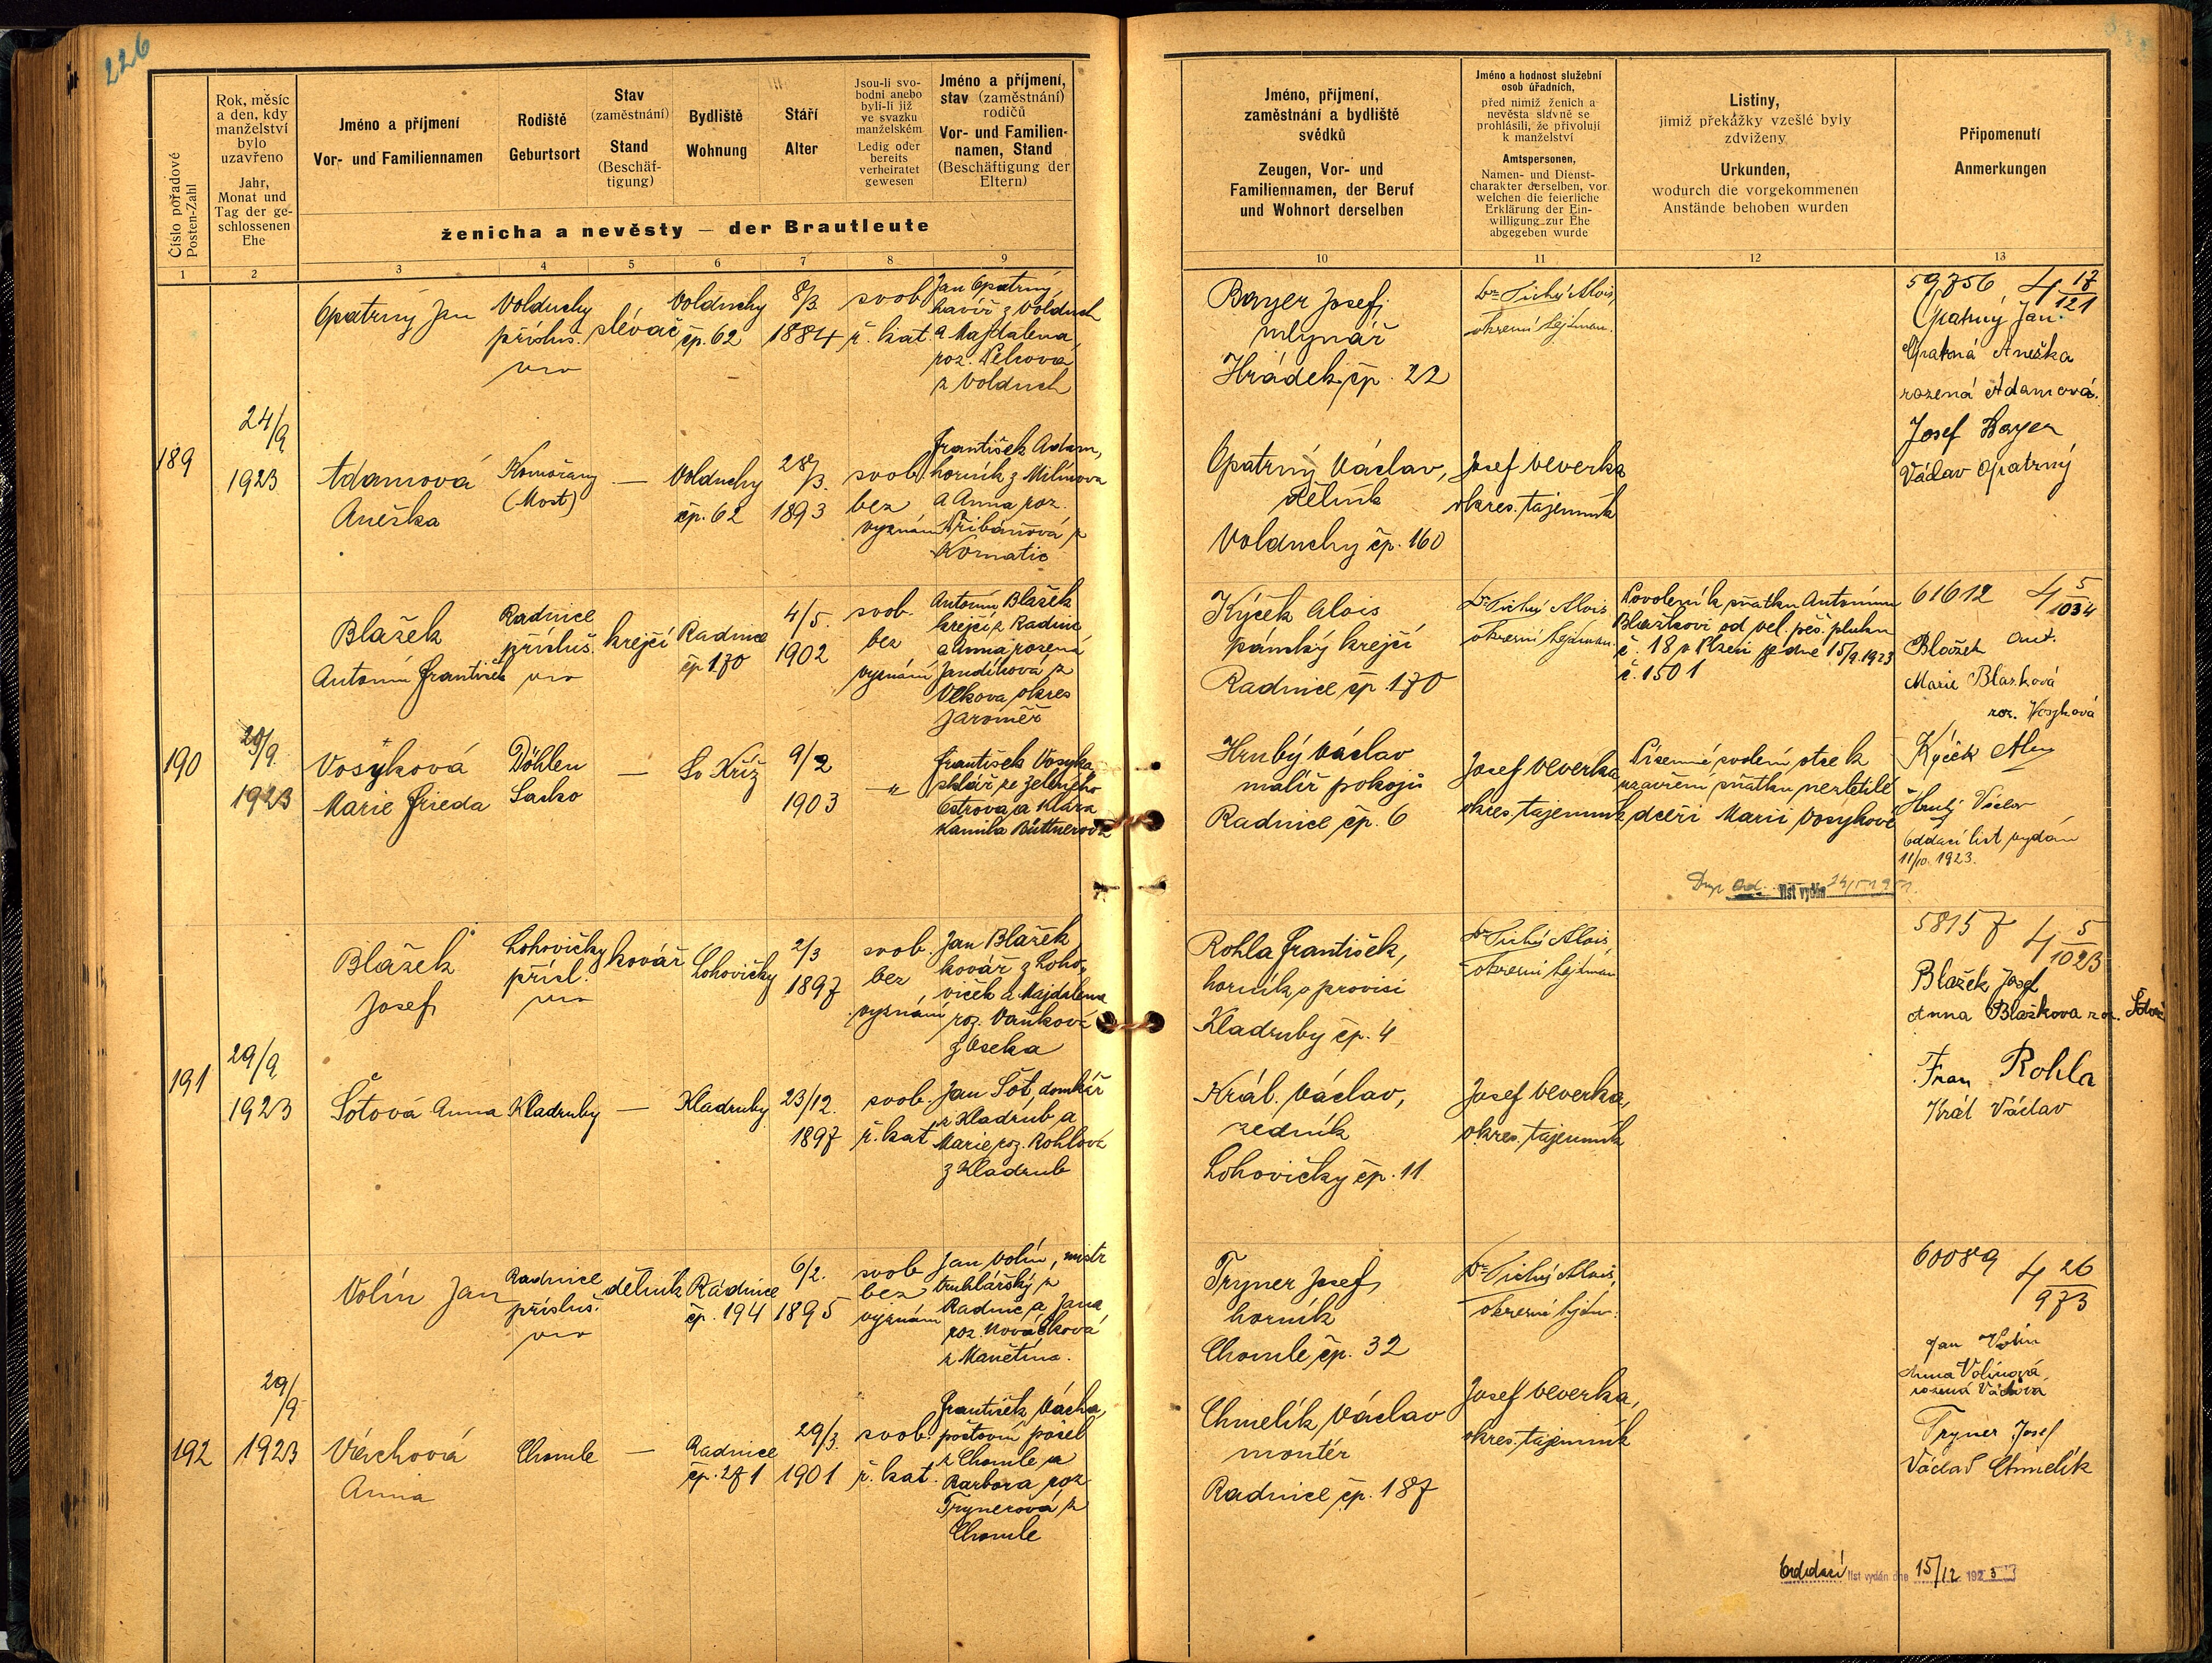 226
Číslo pořadové
Posten-Zahl
Rok, měsíc
a den, kdy
manželství
bylo
uzavřeno
Jahr,
Monat und
Tag der ge-
schlossenen
Ehe
Jméno a příjmení
Vor- und Familiennamen
Rodiště
Geburtsort
Stav
(zaměstnání)
Stand
(Beschäf-
tigung)
Bydliště
Wohnung
Stáří
Alter
Jsou-li svo-
bodni anebo
byli-li již
ve svazku
manželském
Ledig oder
bereits
verheiratet
gewesen
Jméno a příjmení,
stav (zaměstnání)
rodičů
Vor- und Familien-
namen, Stand
(Beschäftigung der
Eltern)
ženicha a nevěsty — der Brautleute
1 2 3 4 5 6 7 8 9
Jméno, příjmení,
zaměstnání a bydliště
svědků
Zeugen, Vor- und
Familiennamen, der Beruf
und Wohnort derselben
Jméno a hodnost služební
osob úřadních,
před nimiž ženich a
nevěsta slavně se
prohlásili, že přivolují
k manželství
Amtspersonen,
Namen- und Dienst-
charakter derselben, vor
welchen die feierliche
Erklärung der Ein-
willigung zur Ehe
abgegeben wurde
Listiny,
jimiž překážky vzešlé byly
zdviženy
Urkunden,
wodurch die vorgekommenen
Anstände behoben wurden
Připomenutí
Anmerkungen
10 11 12 13
189
24/9
1923
Opatrný Jan
Volduchy
přísluš.
slévač
Volduchy
čp. 62
8/3
1884
svob.
ř. kat.
Jan Opatrný,
havíř z Volduch
a Majdalena,
roz. Pelcova
z Volduch
Adamová
Anežka
Komořany
(Most)
—
Volduchy
čp. 62
28/3.
1893
svob.
bez
vyznání
František Adam,
horník z Milínova
a Anna roz.
Přibáňová z
Kornatic
Bayer Josef,
mlynář
Hrádek, čp. 22
Opatrný Václav,
dělník
Volduchy čp. 160
Dr Tichý Alois,
okresní hejtman.
Josef Veverka
okres. tajemník
59756 4 17/121
Opatrný Jan.
Opatrná Anežka
rozená Adamová.
Josef Bayer
Václav Opatrný
190
29/9.
1923
Blažek
Antonín František
Radnice
přísluš.
krejčí
Radnice
čp 170
4/5.
1902
svob.
bez
vyznání
Antonín Blažek
krejčí z Radnic
a Anna rozená
Jandíková z
Vlkova okres
Jaroměř
Vosyková
Marie Frieda
Döhlen
Sasko
—
Sv Kříž
9/2
1903
— " —
František Vosyka
sklář ze Zeleného
Ostrova a Klára
Kamila Büttnerová
Kýček Alois
pánský krejčí
Radnice čp 170
Hrubý Václav
malíř pokojů
Radnice čp. 6
Dr Tichý Alois
okresní hejtman.
Josef Veverka
okres. tajemník
Povolení k sňatku Antonínu
Blažkovi od vel. pěš. pluku
č. 18 v Plzni ze dne 15/9. 1923
č. 1501
Písemné svolení otce k
uzavření sňatku nezletilé
dceři Marii Vosykové
list vydán
61612 4 5/1034
Blažek Ant.
Marie Blažková
roz. Vosyková
Kýček
Hrubý Václav
Oddací list vydán
11/10. 1923.
191
29/9
1923
Blažek
Josef
Lohovičky
přísl.
kovář
Lohovičky
2/3
1897
svob.
bez
vyznání
Jan Blažek
kovář z Loho-
viček a Majdalena
roz. Vaňková
z Oseka
Šotová Anna
Kladruby
—
Kladruby
23/12.
1897
svob.
ř. kat
Jan Šot, domkář
z Kladrub a
Marie roz. Rohlova
z Kladrub
Rohla František,
horník v provisi
Kladruby čp. 4
Král. Václav,
zedník
Lohovičky čp. 11
Dr Tichý Alois,
okresní hejtman
Josef Veverka,
okres. tajemník
58157 4 5/1023
Blažek Josef
Anna Blažkova roz.
Fran Rohla
Král Václav
192
29/9
1923
Volín Jan
Radnice
přísluš.
dělník
Radnice
čp. 194
6/2.
1895
svob
bez
vyznání
Jan Volín, mistr
truhlářský z
Radnic a Jana
roz. Nováčková
z Manětína.
Váchová
Anna
Chomle
—
Radnice
čp. 271
29/3.
1901
svob.
ř. kat.
František Vácha,
poštovní posel
z Chomle a
Barbora roz.
Trynerová z
Chomle
Tryner Josef,
horník
Chomle čp. 32
Chmelík Václav
montér
Radnice čp. 187
Dr Tichý Alois,
okresní hejtm.
Josef Veverka,
okres. tajemník
60089 4 26/973
Jan Volín
Anna Volínová
rozená Váchová
Tryner Josef
Václav Chmelík
Oddací list vydán dne 15/12 1923